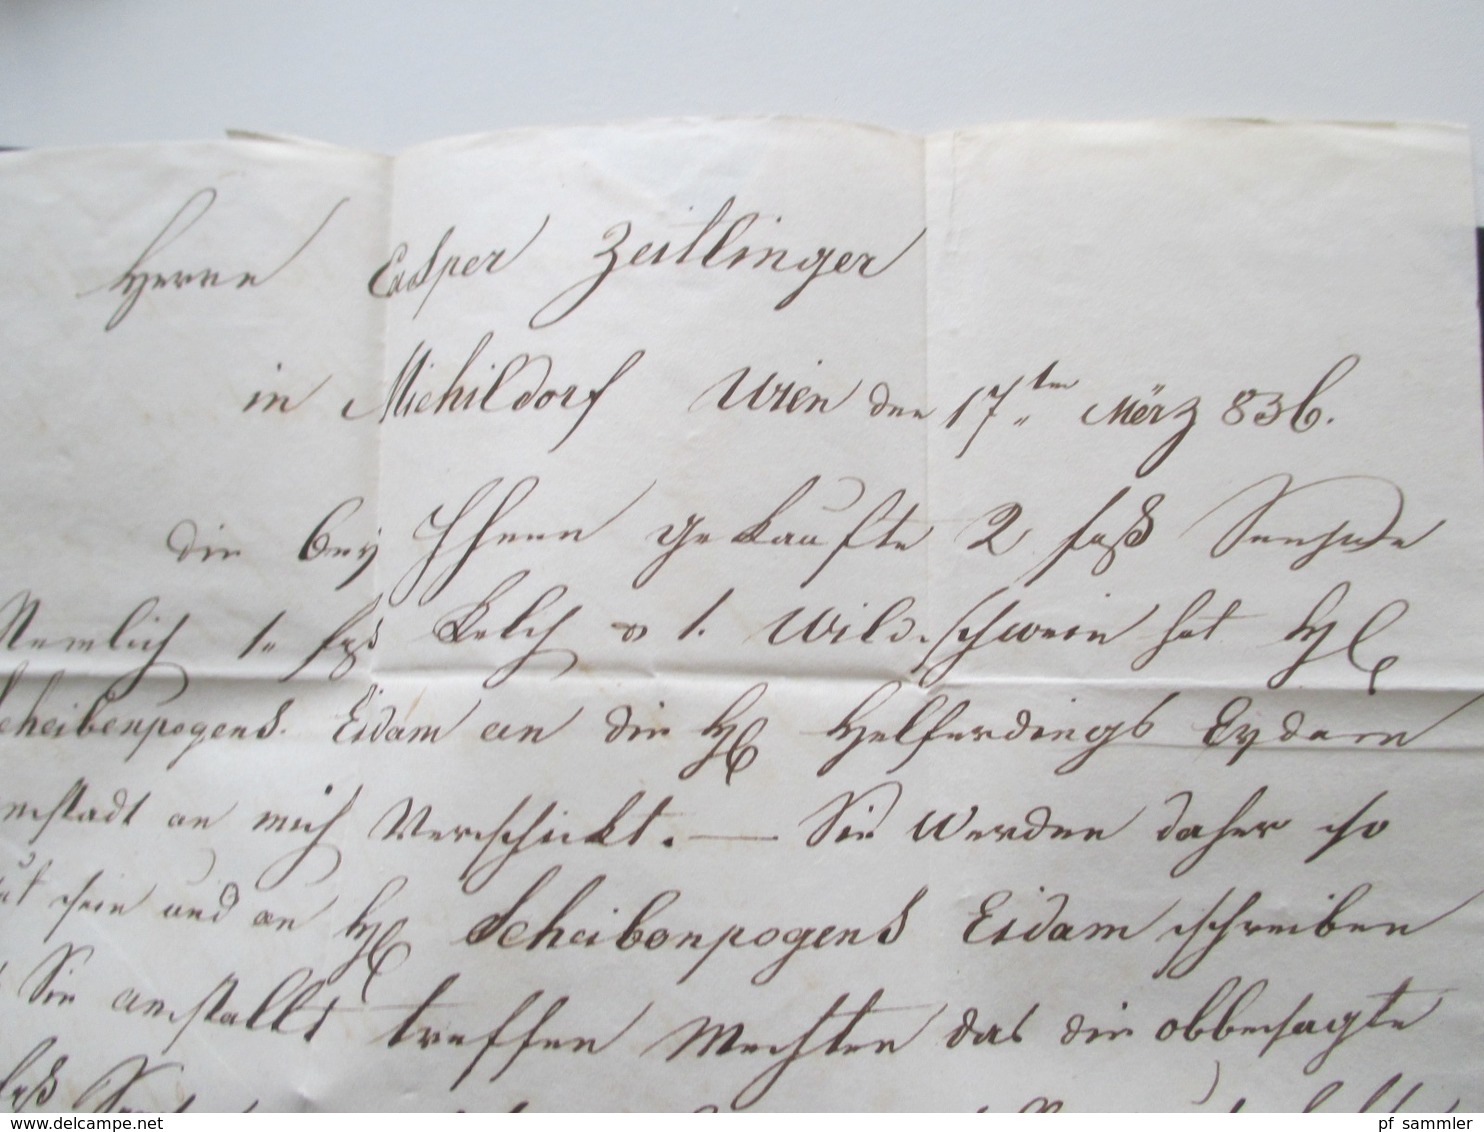 Herrn Casper Zeitlinger
in Michildorf Wien den 17ten März 836.
die bey Ihnen gekaufte 2 faß Sensen
Nemlich 1. faß Kelch u 1. Wildschwein hat H
Scheibenpogens. Eidam an die H Helferdings Eydam
anstadt an mich Verschickt. — Sie werden daher so
gut sein und an H Scheibenpogens Eidam schreiben
Sie anstallt treffen Mechten das die obbesagte
faß
www.delcampe.net
pf_sammler